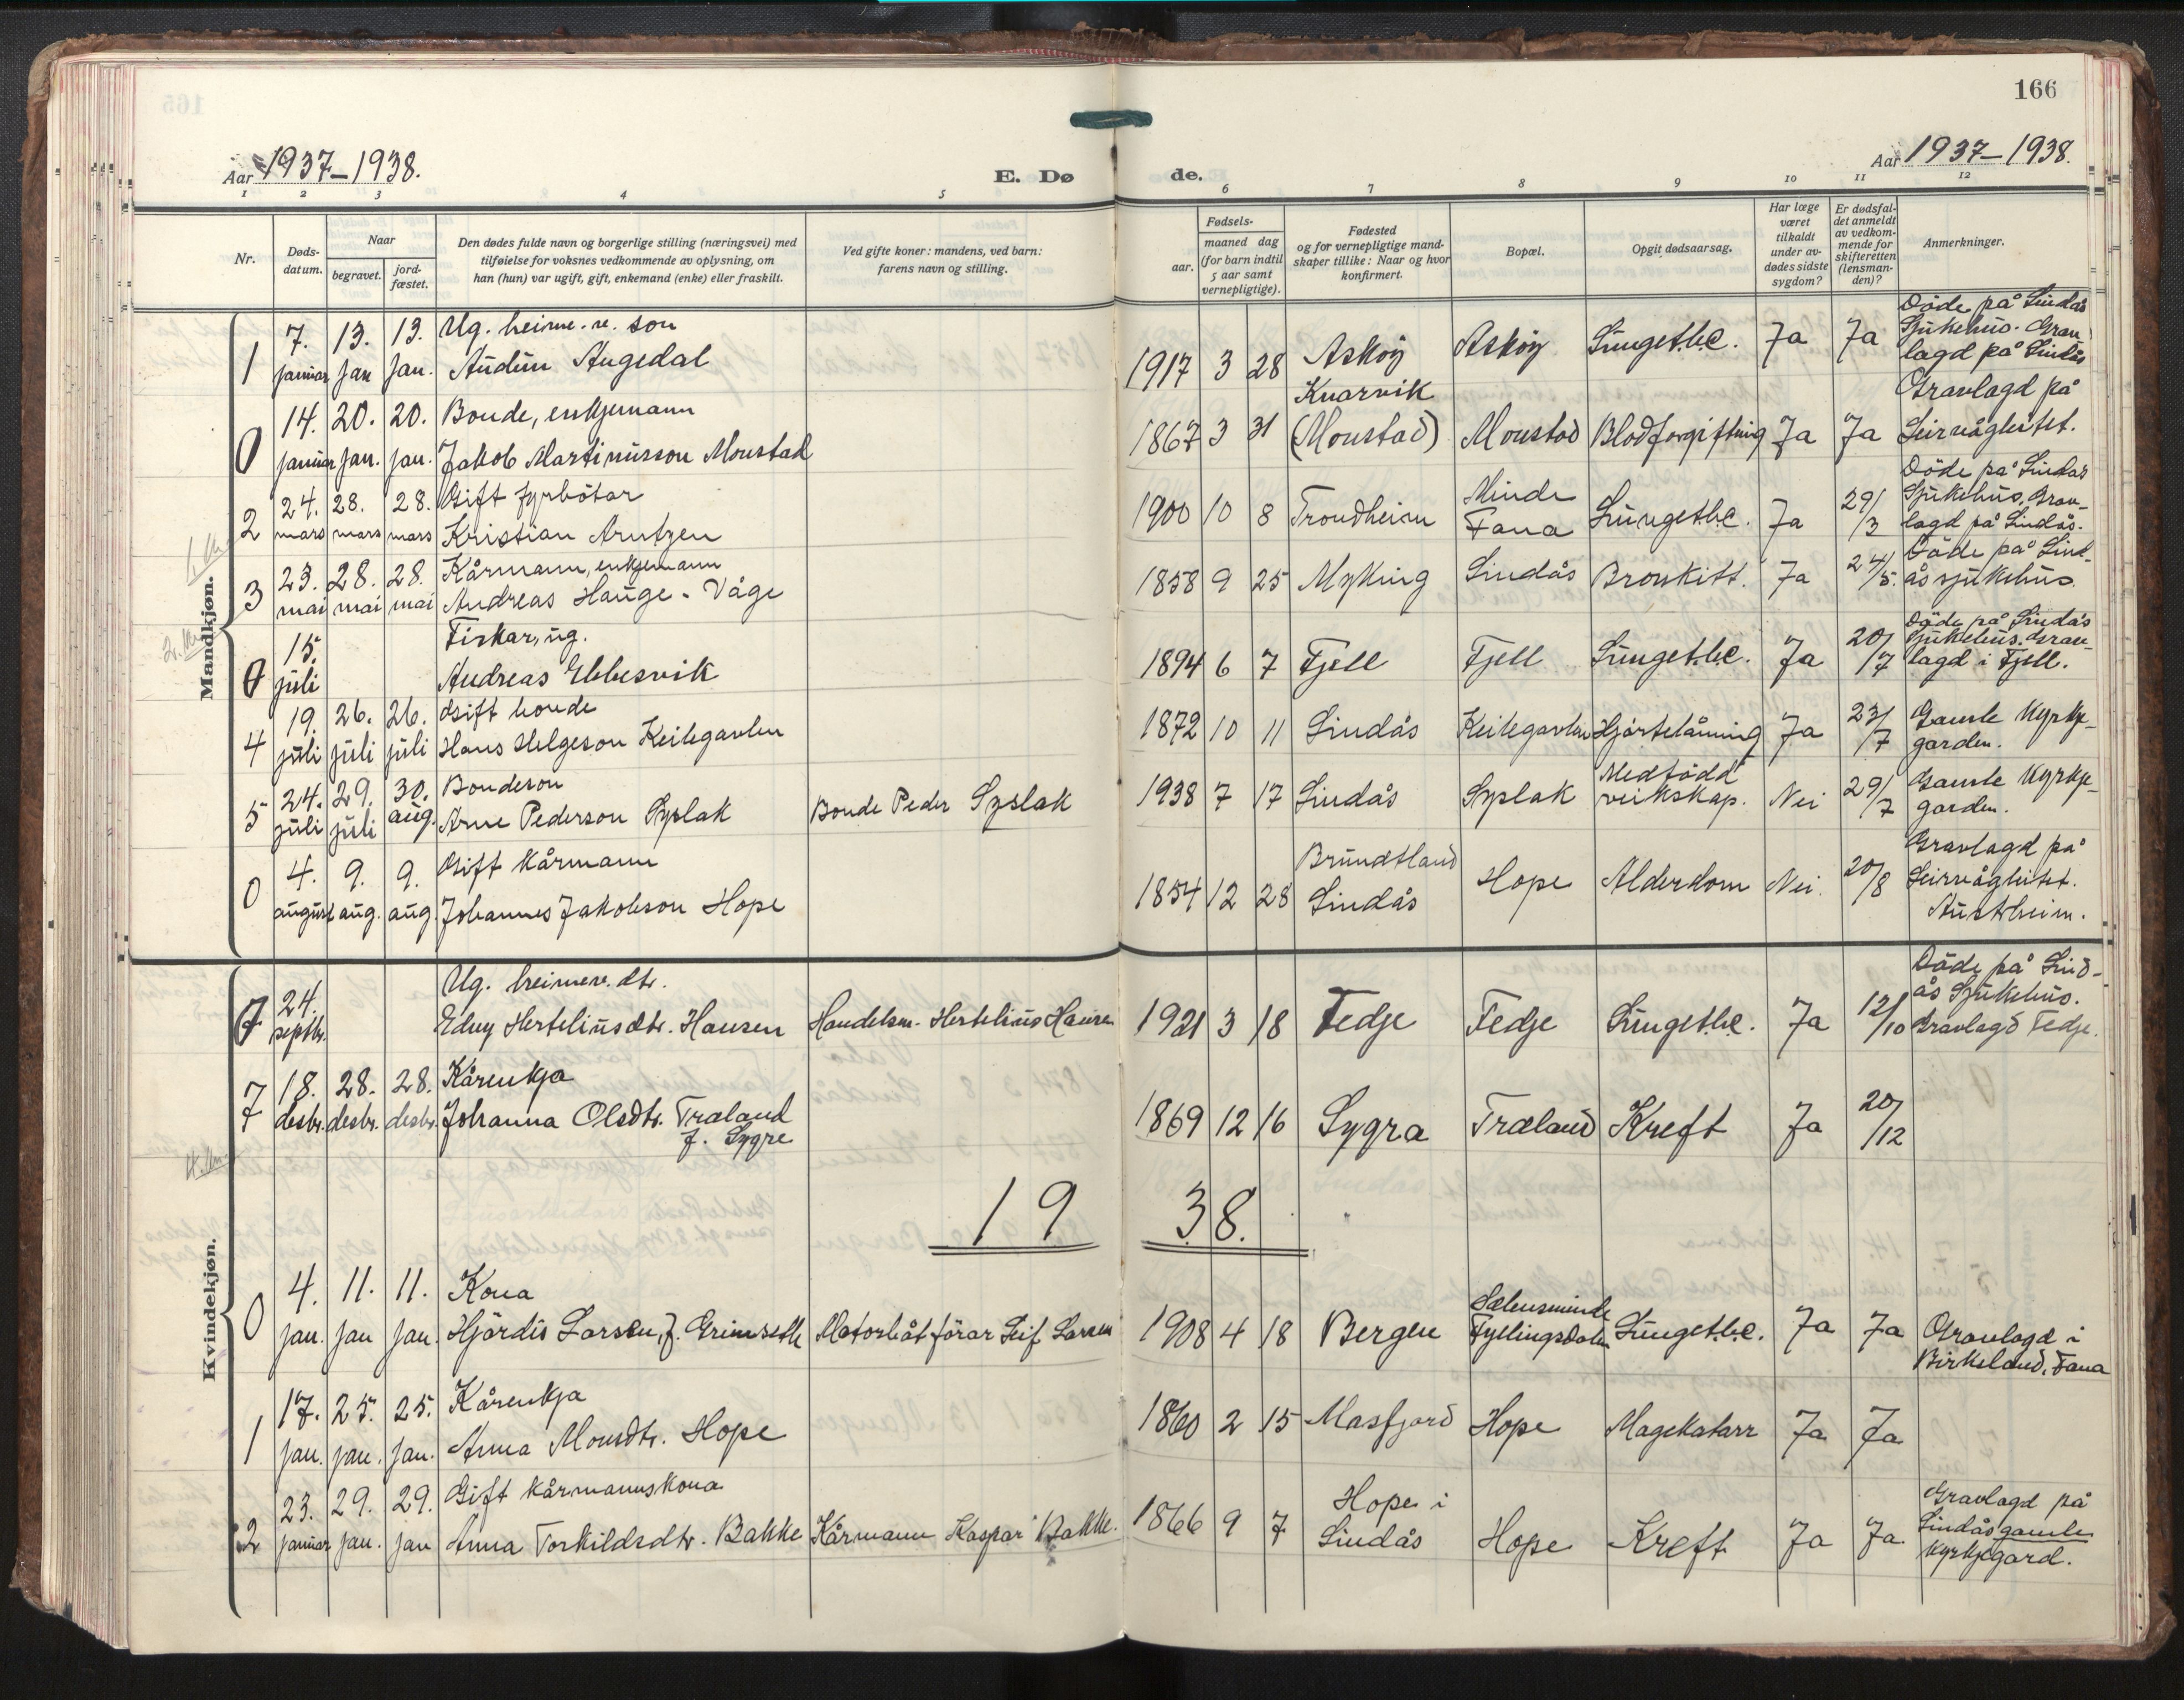 166
Aar 1937–1938.
E. Dø
de.
Aar 1937–1938.
1 2 3 4 5 6 7 8 9 10 11 12
Nr.
Døds-
datum.
Naar
begravet.
jord-
fæstet.
Den dødes fulde navn og borgerlige stilling (næringsvei) med
tilføielse for voksnes vedkommende av oplysning, om
han (hun) var ugift, gift, enkemand (enke) eller fraskilt.
Ved gifte koner: mandens, ved barn:
farens navn og stilling.
Fødsels-
aar.
maaned dag
(for barn indtil
5 aar samt
vernepligtige).
Fødested
og for vernepligtige mand-
skaper tillike: Naar og hvor
konfirmert.
Bopæl.
Opgit dødsaarsag.
Har læge
været
tilkaldt
under av-
dødes sidste
sygdom?
Er dødsfal-
det anmeldt
av vedkom-
mende for
skifteretten
(lensman-
den)?
Anmerkninger.
Mandkjøn.
1 7. januar 13. jan 13. jan.
Ug. heime-v. son
Audun Augedal
1917 3 28 Askøy Askøy Lungetbc. Ja Ja
Döde på Lindås
Sjukehus. Grav-
lagd på Lindås
0 14. januar 20. jan. 20. jan.
Bonde, enkjemann
Jakob Martinusson Monstad
1867 3 31
Knarvik
(Monstad) Monstad Blodforgiftning Ja Ja
Gravlagd på
Leirvågleitet.
2 24. mars 28. mars 28. mars
Gift fyrbötar
Kristian Arntzen
1900 10 8 Trondheim
Minde
Fana Lungetbc. Ja 29/3
Döde på Lindås
Sjukehus. Grav-
lagd på Lindås.
3 23. mai 28. mai 28. mai
Kårmann, enkjemann
Andreas Hauge-Våge
1858 9 25 Myking Lindås Bronkitt. Ja 24/5.
Döde på Lind-
ås sjukehus.
0 15. juli
Fiskar, ug.
Andreas Ebbesvik
1894 6 7 Fjell Fjell Lungetbc. Ja 20/7
Döde på Lindås
Sjukehus. Grav-
lagd i Fjell.
4 19. juli 26. juli 26. juli
Gift bonde
Hans Helgeson Keilegavlen
1872 10 11 Lindås Keilegavlen Hjartelåming Ja 23/7
Gamle Kyrkje-
garden.
5 24. juli 29. juli 30. aug.
Bondeson
Arne Pederson Syslak
Bonde Peder Syslak
1938 7 17 Lindås Syslak
Medfödd
veikskap. Nei 29/7
Gamle Kyrkje-
garden.
0 4. august 9. aug. 9. aug.
Gift kårmann
Johannes Jakobson Hope
1854 12 28
Brundtland
Lindås Hope Alderdom Nei. 20/8
Gravlagd på
Leirvågleitet.
Austrheim.
Kvindekjøn.
24. septbr.
Ug. heimev. dtr.
Edny Herteliusdtr. Hansen
Handelsm. Hertelius Hansen
1921 3 18 Fedje Fedje Lungetbc. Ja 12/10
Döde på Lind-
ås Sjukehus.
Gravlagd Fedje.
7 18. desbr. 28. desbr. 28. desbr.
Kårenkja
Johanna Olsdtr. Træland
f. Sygre
1869 12 16 Sygra Træland Kreft Ja 20/12
19 38.
0 4. jan. 11. jan 11. jan.
Kona
Hjördis Larsen, f. Grimseth
Motorbåtförar Leif Larsen
1908 4 18 Bergen
Sælensminde
Fyllingsdalen Lungetbc. Ja Ja
Gravlagd i
Birkeland, Fana
1 17. jan. 25. jan. 25. jan.
Kårenkja
Anna Monsdtr. Hope
1860 2 15 Masfjord Hope Magekatarr Ja Ja
2 23. januar 29. jan. 29. jan
Gift kårmannskona
Anna Torkildsdtr. Bakke
Kårmann Kaspar Bakke.
1866 9 7
Hope i
Lindås Hope Kreft Ja Ja
Gravlagd på
Lindås gamle
kyrkjegard.